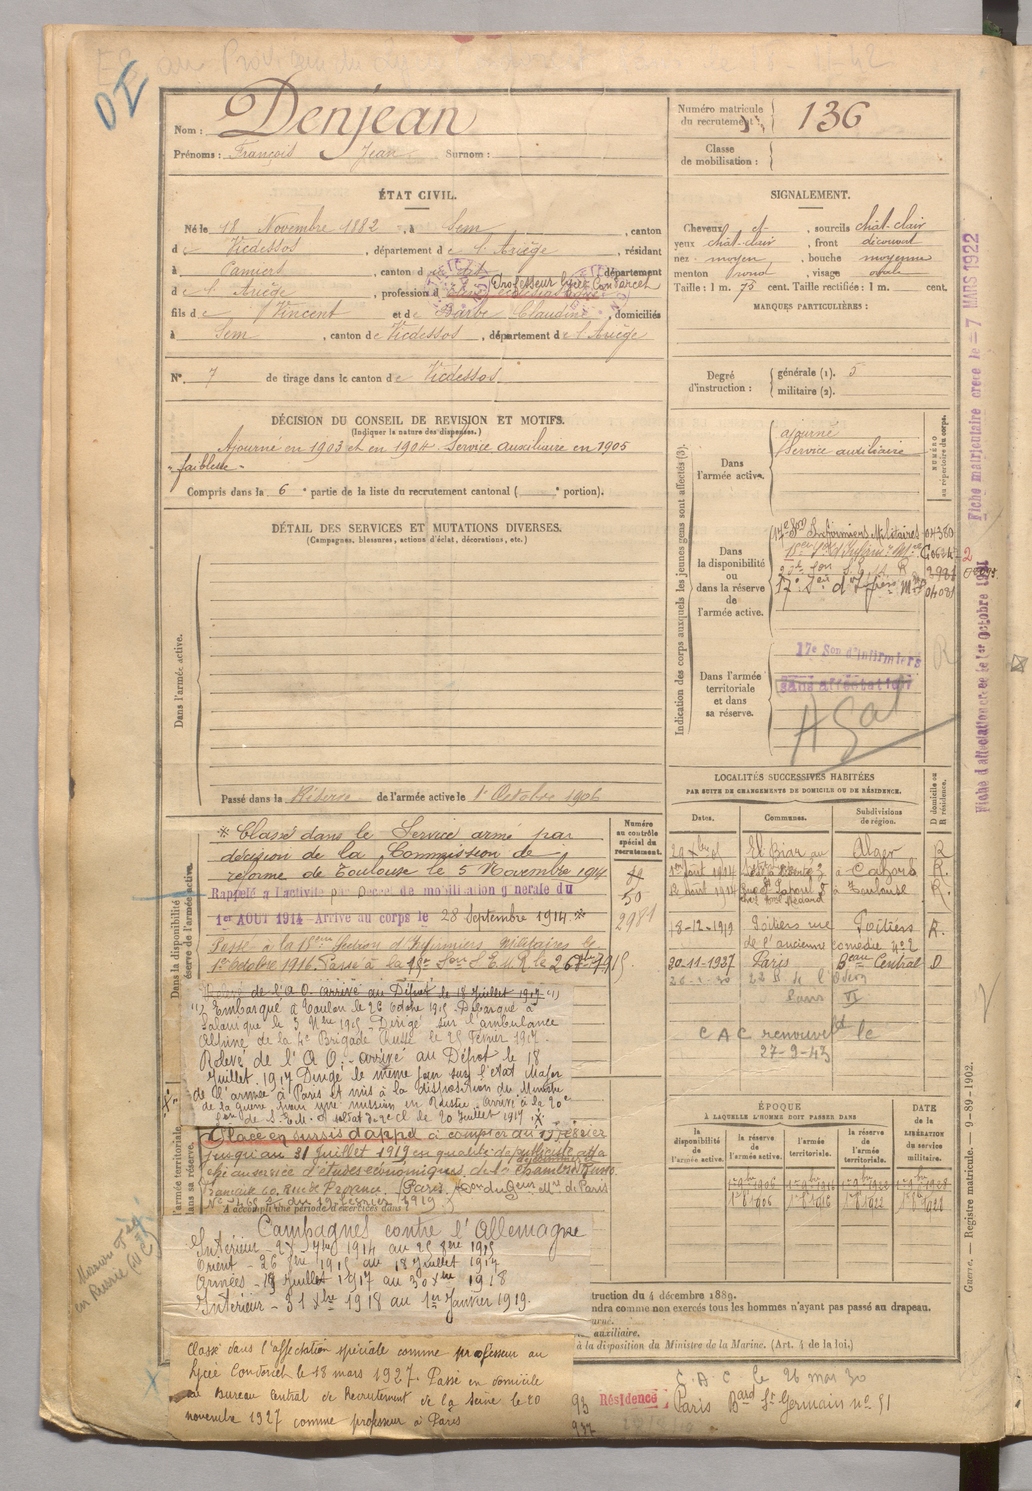 DI
Nom : Denjean
Prénoms : François Jean Surnom :
Numéro matricule du recrutement : 136
Classe de mobilisation :
ÉTAT CIVIL.
Né le 18 Novembre 1882, à Sem, canton
de Vicdessos, département de l'Ariège, résidant
à Camiers, canton d département
de l'Ariège, profession d Professeur Lycée Condorcet
fils de Vincent et de Barbe Claudine, domiciliés
à Sem, canton de Vicdessos, département de l'Ariège
N° 7 de tirage dans le canton de Vicdessos.
SIGNALEMENT.
Cheveux et, sourcils chât-clair
yeux chât-clair, front découvert
nez moyen, bouche moyenne
menton rond, visage ovale
Taille : 1 m. 75 cent. Taille rectifiée : 1 m. cent.
MARQUES PARTICULIÈRES :
Degré d'instruction :
générale (1). 5
militaire (2).
DÉCISION DU CONSEIL DE REVISION ET MOTIFS.
(Indiquer la nature des dispenses.)
Ajourné en 1903 et en 1904. Service auxiliaire en 1905
"faiblesse"
Compris dans la 6e partie de la liste du recrutement cantonal ( e portion).
DÉTAIL DES SERVICES ET MUTATIONS DIVERSES.
(Campagnes, blessures, actions d'éclat, décorations, etc.)
Dans l'armée active.
Passé dans la Réserve de l'armée active le 1er Octobre 1906
Indication des corps auxquels les jeunes gens sont affectés (3).
NUMÉRO au répertoire du corps.
Dans l'armée active.
ajourné
Service auxiliaire
Dans la disponibilité ou dans la réserve de l'armée active.
17e Son Infirmiers Militaires 04380
2981
17e Son d'Infirs Mres 04081
Dans l'armée territoriale et dans sa réserve.
17e Son d'Infirmiers
sans affectation
Fiche matriculaire créée le = 7 MARS 1922
Fiche d'affectation créée le 1er Octobre 1921
LOCALITÉS SUCCESSIVES HABITÉES
PAR SUITE DE CHANGEMENTS DE DOMICILE OU DE RÉSIDENCE.
Dates. Communes. Subdivisions de région. D domicile ou R résidence.
El Biar Alger R
1er Août 1914 Cahors R.
Toulouse R.
18-12-1919 Poitiers rue Poitiers R.
de l'ancienne comédie n° 2
30-11-1937 Paris Beau Central D
22 R de l'Odéon
Paris VI
CAC renouvelé le
27-9-43
Numéro au contrôle spécial du recrutement.
50
2981
Dans la disponibilité
réserve de l'armée active.
* Classé dans le Service armé par
décision de la Commission de
réforme de Toulouse le 5 Novembre 1914
Rappelé à l'activité par Décret de mobilisation générale du
1er AOUT 1914 Arrivé au corps le 28 Septembre 1914. *
Passé à la 18eme Section d'Infirmiers Militaires le
1er Octobre 1916. Passé à la
Relevé de l'A.O. arrivé au Dépôt le 18 Juillet 1917
Embarqué à Toulon le 26 Octobre 1915. Débarqué à
Salonique le 3 Nbre 1915. Dirigé sur l'ambulance
Alpine de la 4e Brigade Russe le 25 Février 1917.
Relevé de l'A.O. arrivé au Dépôt le 18
Juillet 1917 Dirigé le même jour sur l'Etat Major
de l'armée à Paris et mis à la disposition du Ministre
de la guerre pour une mission en Russie. Arrivé à la 20e
Son de S.E.M. soldat de 2e cl le 20 Juillet 1917.
Placé en sursis d'appel à compter du 19 février
jusqu'au 31 Juillet 1919 en qualité de publiciste atta-
ché au service d'études économiques de la Chambre Russo
Française 60, Rue de Provence. Paris
du 19 février 1919
A accompli une période d'exercices dans
l'armée territoriale
dans sa réserve.
Mission
en Russie
Campagnes contre l'Allemagne
Intérieur - 28 7bre 1914 au 25 8bre 1915
Orient - 26 8bre 1915 au 18 Juillet 1917
Armées - 19 Juillet 1917 au 30 Xbre 1918
Intérieur - 31 Xbre 1918 au 1er Janvier 1919.
Classé dans l'affectation spéciale comme professeur au
Lycée Condorcet le 18 mars 1927. Passé en domicile
au Bureau Central de Recrutement de la Seine le 20
novembre 1927 comme professeur à Paris
ÉPOQUE
À LAQUELLE L'HOMME DOIT PASSER DANS
la disponibilité de l'armée active.
la réserve de l'armée active.
l'armée territoriale.
la réserve de l'armée territoriale.
DATE de la LIBÉRATION du service militaire.
Guerre. — Registre matricule. — 9-89-1902.
struction du 4 décembre 1889.
ndra comme non exercés tous les hommes n'ayant pas passé au drapeau.
auxiliaire.
à la disposition du Ministre de la Marine. (Art. 4 de la loi.)
C.A.C le 26 mai 30
93 Résidence Paris Bard St Germain n° 51
937